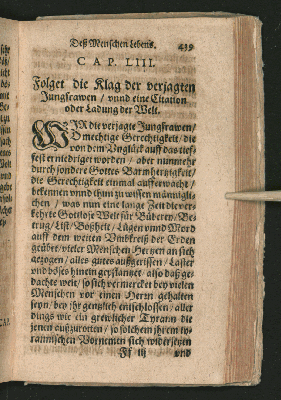 Deß Menschen Lebens. 439
CAP. LIII.
Folget die Klag der verjagten
Jungfrawen / vnnd eine Citation
oder Ladung der Welt.
WIR die verjagte Jungfrawen /
Omechtige Gerechtigkeit / die
von dem Vnglück auff das tief-
fest ernidriget worden / aber nunmehr
durch sondere Gottes Barmhertzigkeit /
die Gerechtigkeit einmal aufferwacht /
bekennen vnnd thun zu wissen männigli-
chen / was nun eine lange Zeit die ver-
kehrte Gottlose Welt für Büberey / Be-
trug / List / Boßheit / Lügen vnnd Mord
auff dem weiten Vmbkreiß der Erden
geübet / vieler Menschen Hertzen an sich
gezogen / alles gutes außgerissen / Laster
vnd böses hinein gepflantzet / also daß ge-
dachte welt / so sich vermercket bey vielen
Menschen vor einen Herrn gehalten
seyn / bey ihr gentzlich entschlossen / aller
dings wie ein grewlicher Tyrann die
jenen außzurotten / so solchem ihrem ty-
rannischen Vornemen sich widersetzen
Ff iij vnd
CAP.